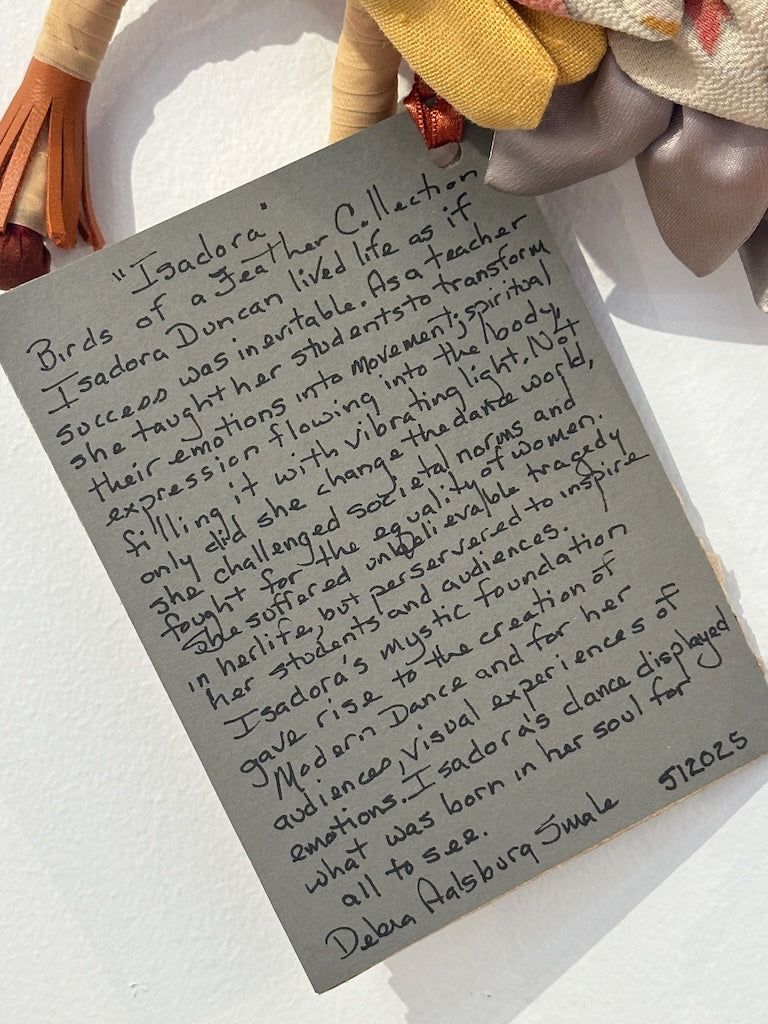 "Isadora"
Birds of a Feather Collection
Isadora Duncan lived life as if
success was inevitable. As a teacher
she taught her students to transform
their emotions into movement; spiritual
expression flowing into the body,
filling it with vibrating light. Not
only did she change the dance world,
she challenged societal norms and
fought for the equality of women.
She suffered unbelievable tragedy
in her life, but perservered to inspire
her students and audiences.
Isadora's mystic foundation
gave rise to the creation of
Modern Dance and for her
audiences, visual experiences of
emotions. Isadora's dance displayed
what was born in her soul for
all to see.
Debra Aalsburg Smale 5/2025